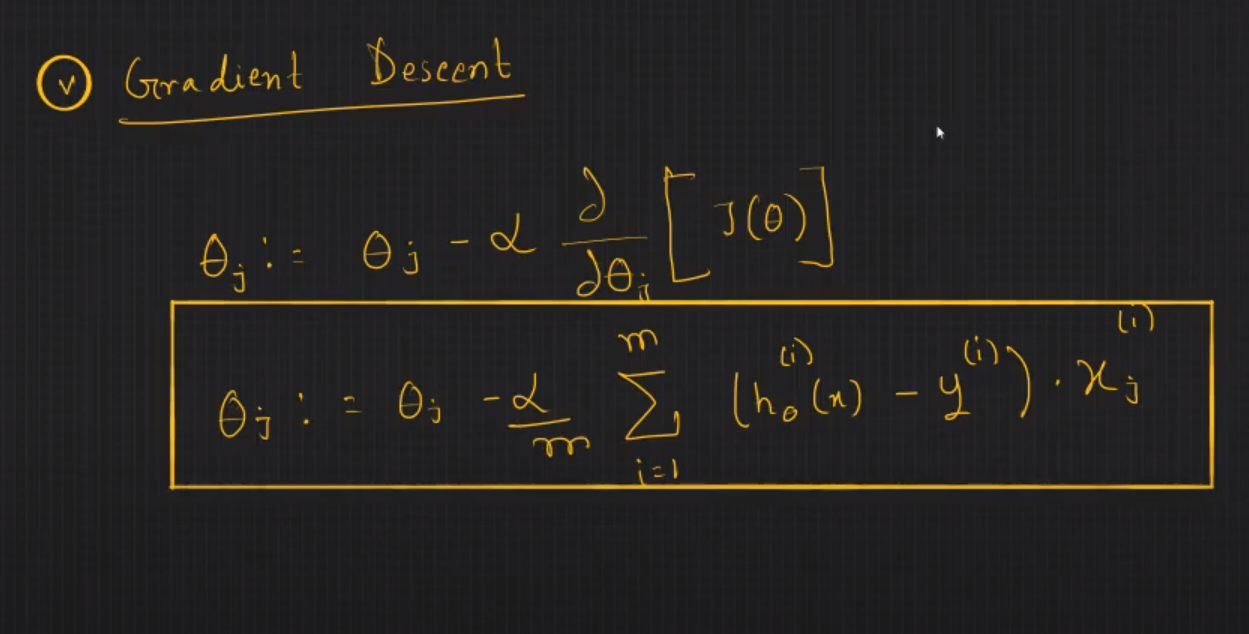 (v) Gradient Descent
θj := θj - α ∂/∂θj [J(θ)]
θj := θj - α/m Σ_{i=1}^{m} (hθ^{(i)}(x) - y^{(i)}) · xj^{(i)}